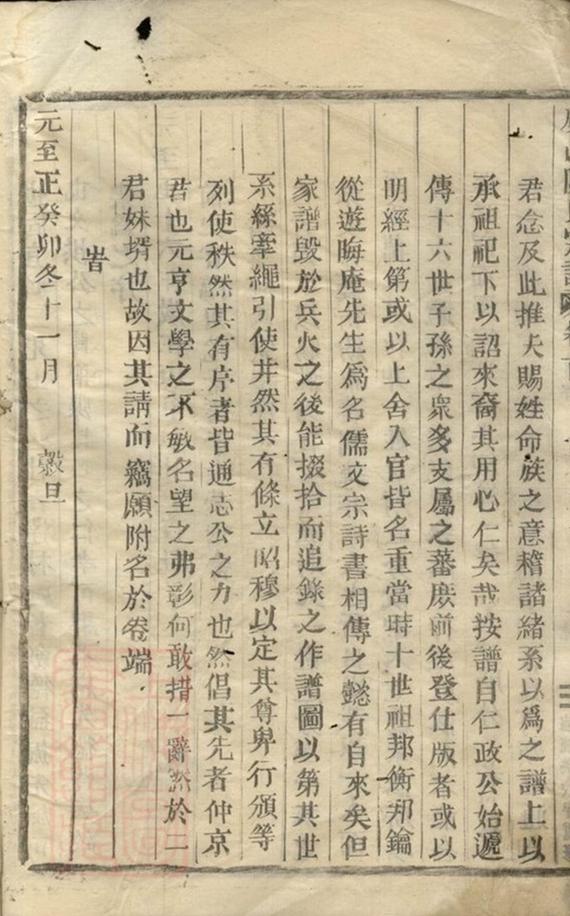 君念及此推夫賜姓命族之意稽諸緒系以爲之譜上以
承祖祀下以詔來裔其用心仁矣哉按譜自仁政公始遞
傳十六世子孫之衆多支屬之蕃庶前後登仕版者或以
明經上第或以上舍入官皆名重當時十世祖邦衡邦鑰
從遊晦庵先生爲名儒文宗詩書相傳之懿有自來矣但
家譜毀於兵火之後能掇拾而追錄之作譜圖以第其世
系絲牽繩引使井然其有條立昭穆以定其尊卑行頒等
列使秩然其有序者皆通志公之力也然倡其先者仲京
君也元亨文學之不敏名望之弗彰何敢措一辭然於二
君妹壻也故因其請而竊願附名於卷端
旹
元至正癸卯冬十一月 榖旦